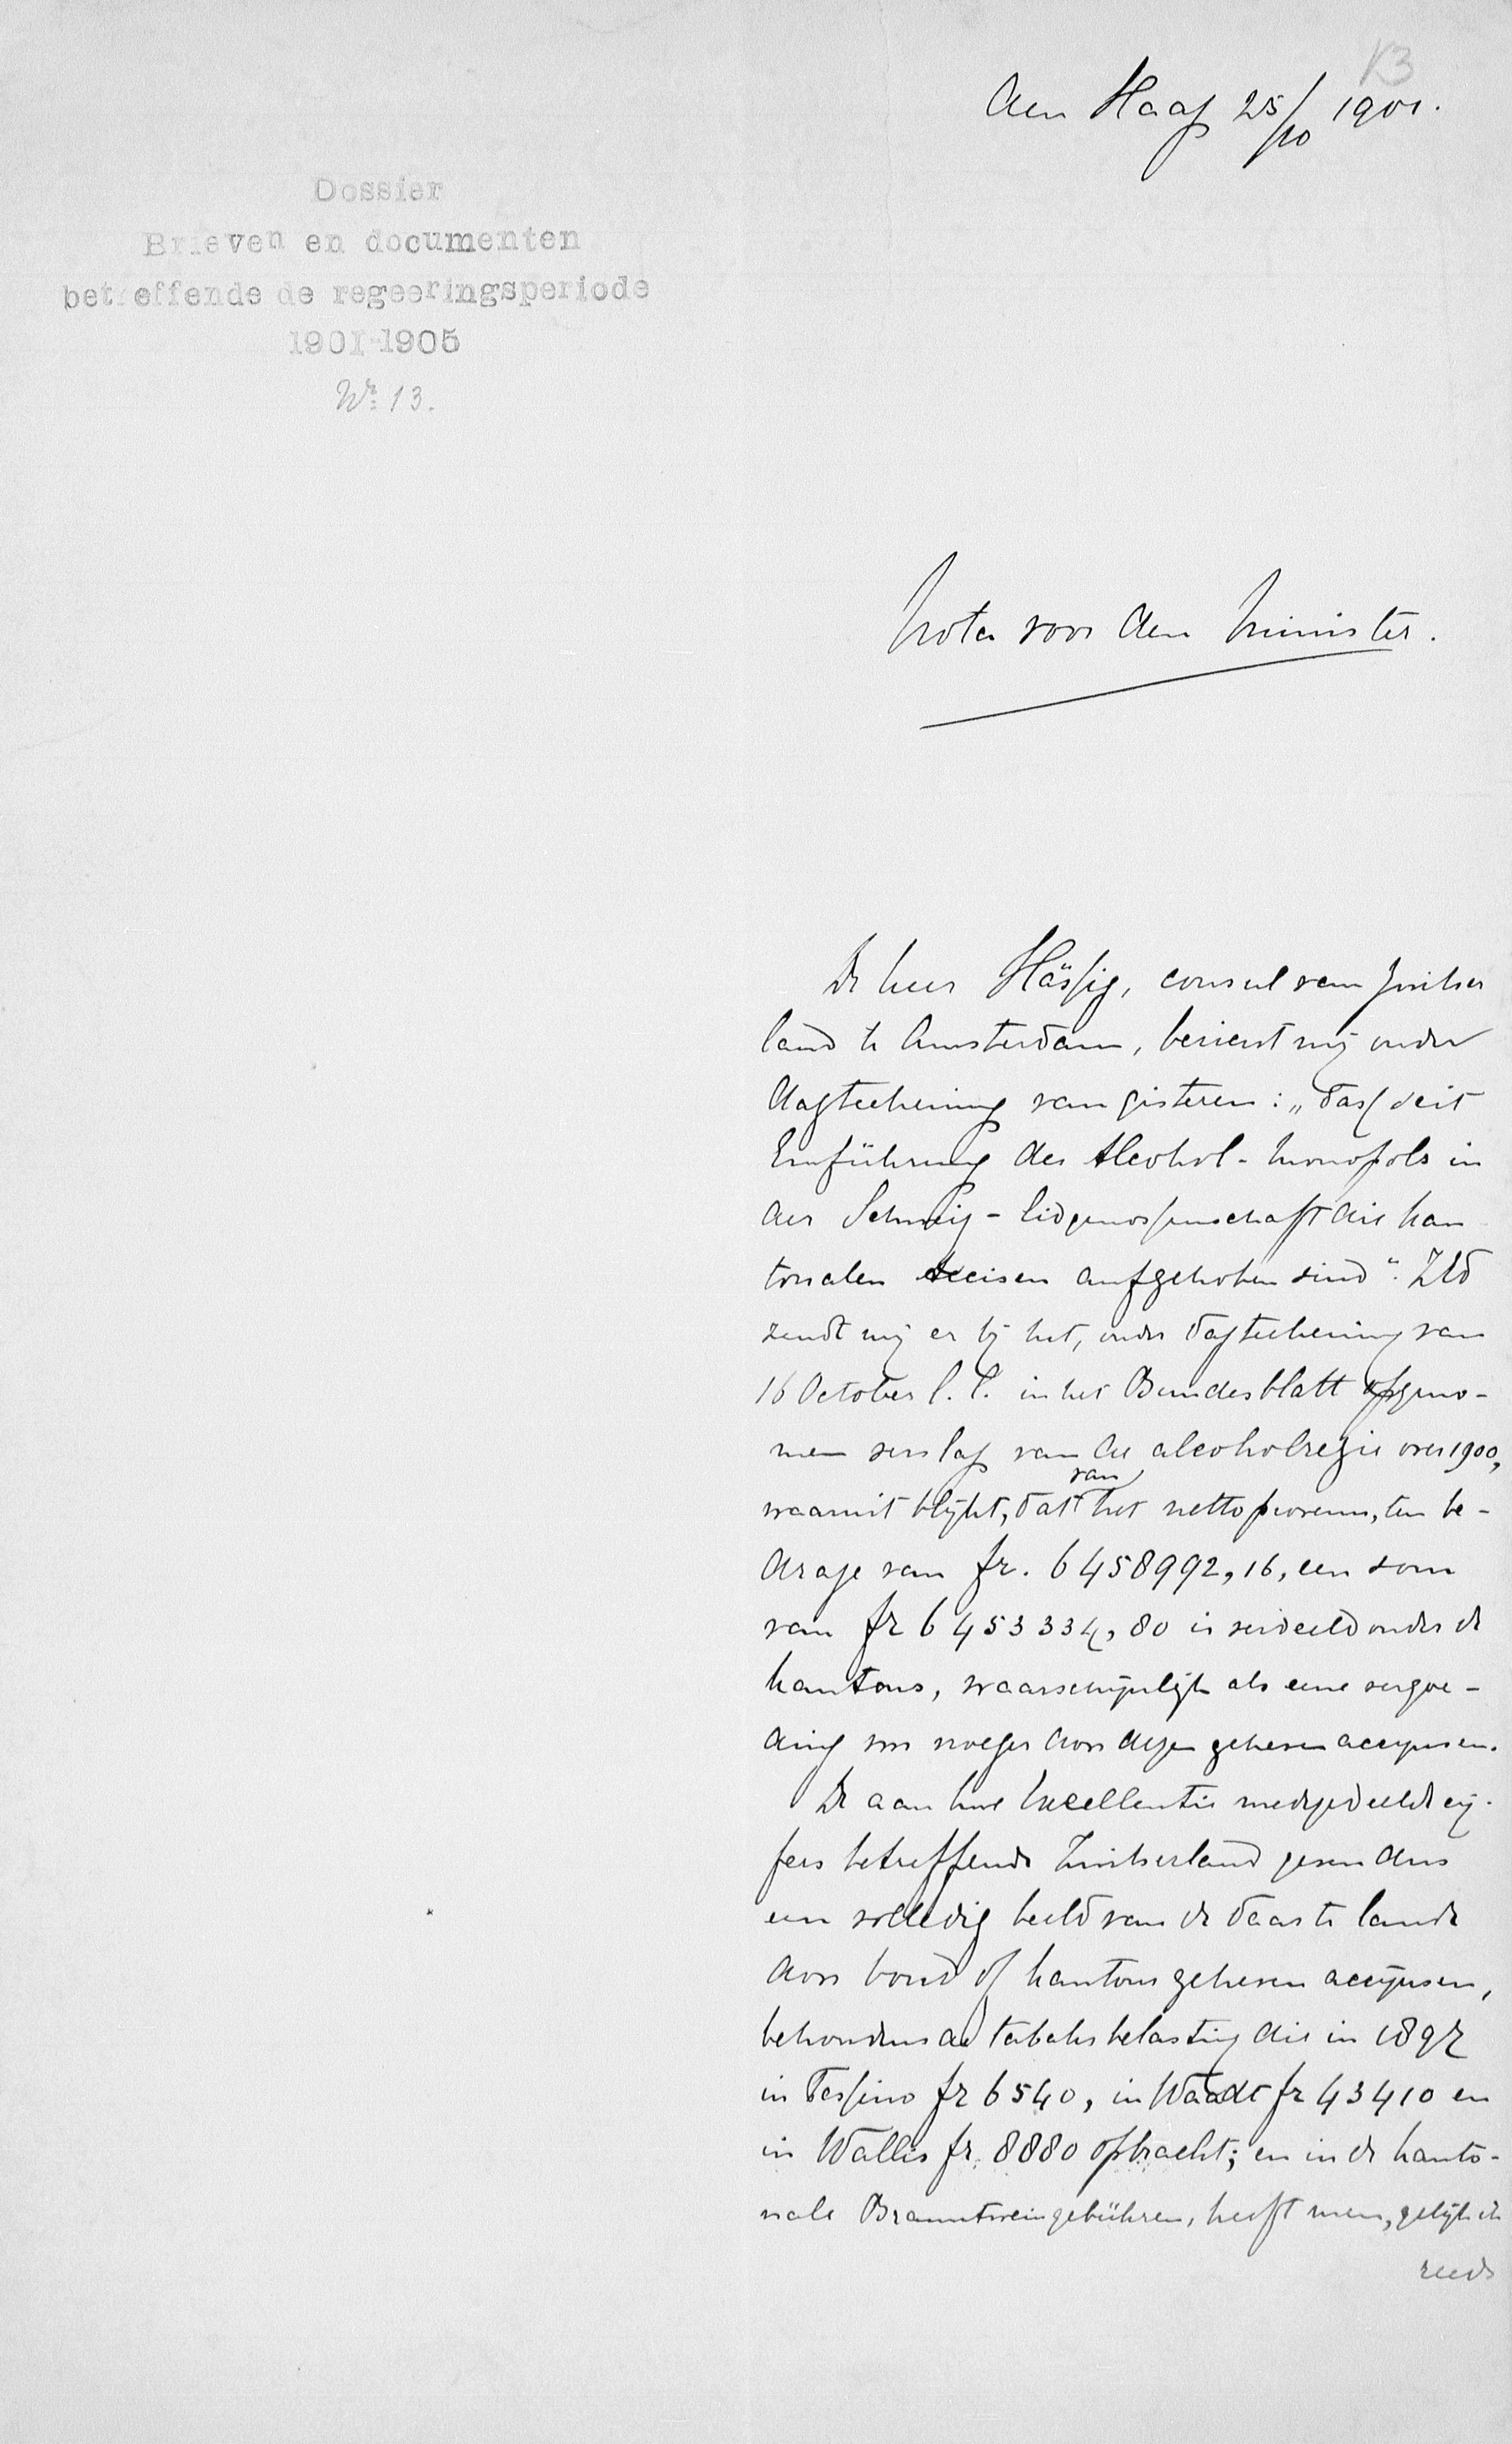 13
den Haag 25/10 1901.
Dossier
Brieven en documenten
betreffende de regeeringsperiode
1901-1905
Nr. 13.
Nota voor den Minister.
De heer Hässig, consul van Zwitser
land te Amsterdam, bericht mij onder
dagteekening van gisteren: „dass seit
Einführung des Alcohol-Monopols in
der Schweiz-Eidgenossenschaft die kan
tonalen Accisen aufgehoben sind". ZEd
zendt mij er bij het, onder dagteekening van
16 October l.l. in het Bundesblatt opgeno-
men verslag van de alcoholregie over 1900,
waaruit blijkt, dat van het netto provenu, ten be-
drage van fr. 6458992,16, een som
van fr 6453334,80 is verdeeld onder de
kantons, waarschijnlijk als eene vergoe-
ding voor vroeger door dezen geheven accijnsen.
De aan Uwe Excellentie medegedeelde cij-
fers betreffende Zwitserland geven dus
een volledig beeld van de daar te lande
door bond of kantons geheven accijnsen,
behoudens de tabaksbelasting die in 1897
in Tessino fr 6540, in Waadt fr 43410 en
in Wallis fr. 8880 opbracht; en in de kanto-
nale Branntweingebühren, heeft men, gelijk ik
reeds